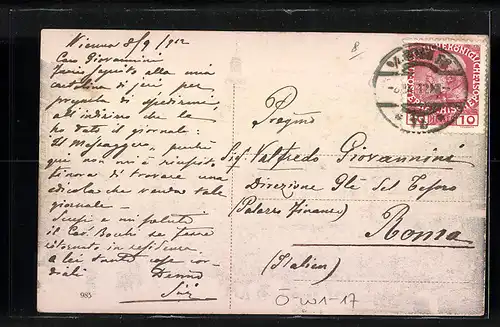 Vienna 8/9/912
Caro Giovannini
Faccio seguito alla mia
cartolina di ieri, per
pregarla di spedirmi,
all'indirizzo che la
ho dato il giornale
Il Messaggero, perchè
qui non mi è riuscito
finora di trovare una
edicola che venda tale
giornale -
Scusi e mi saluti
il Cav. Bonti se fosse
ritornato in residenza
a lei tante cose cor-
diali
985
8
Pregmo
Sig. Valfredo Giovannini
Direzione Gle del Tesoro
(Palazzo Finanze)
Roma
(Italien)
Ö-W1-17
10 10